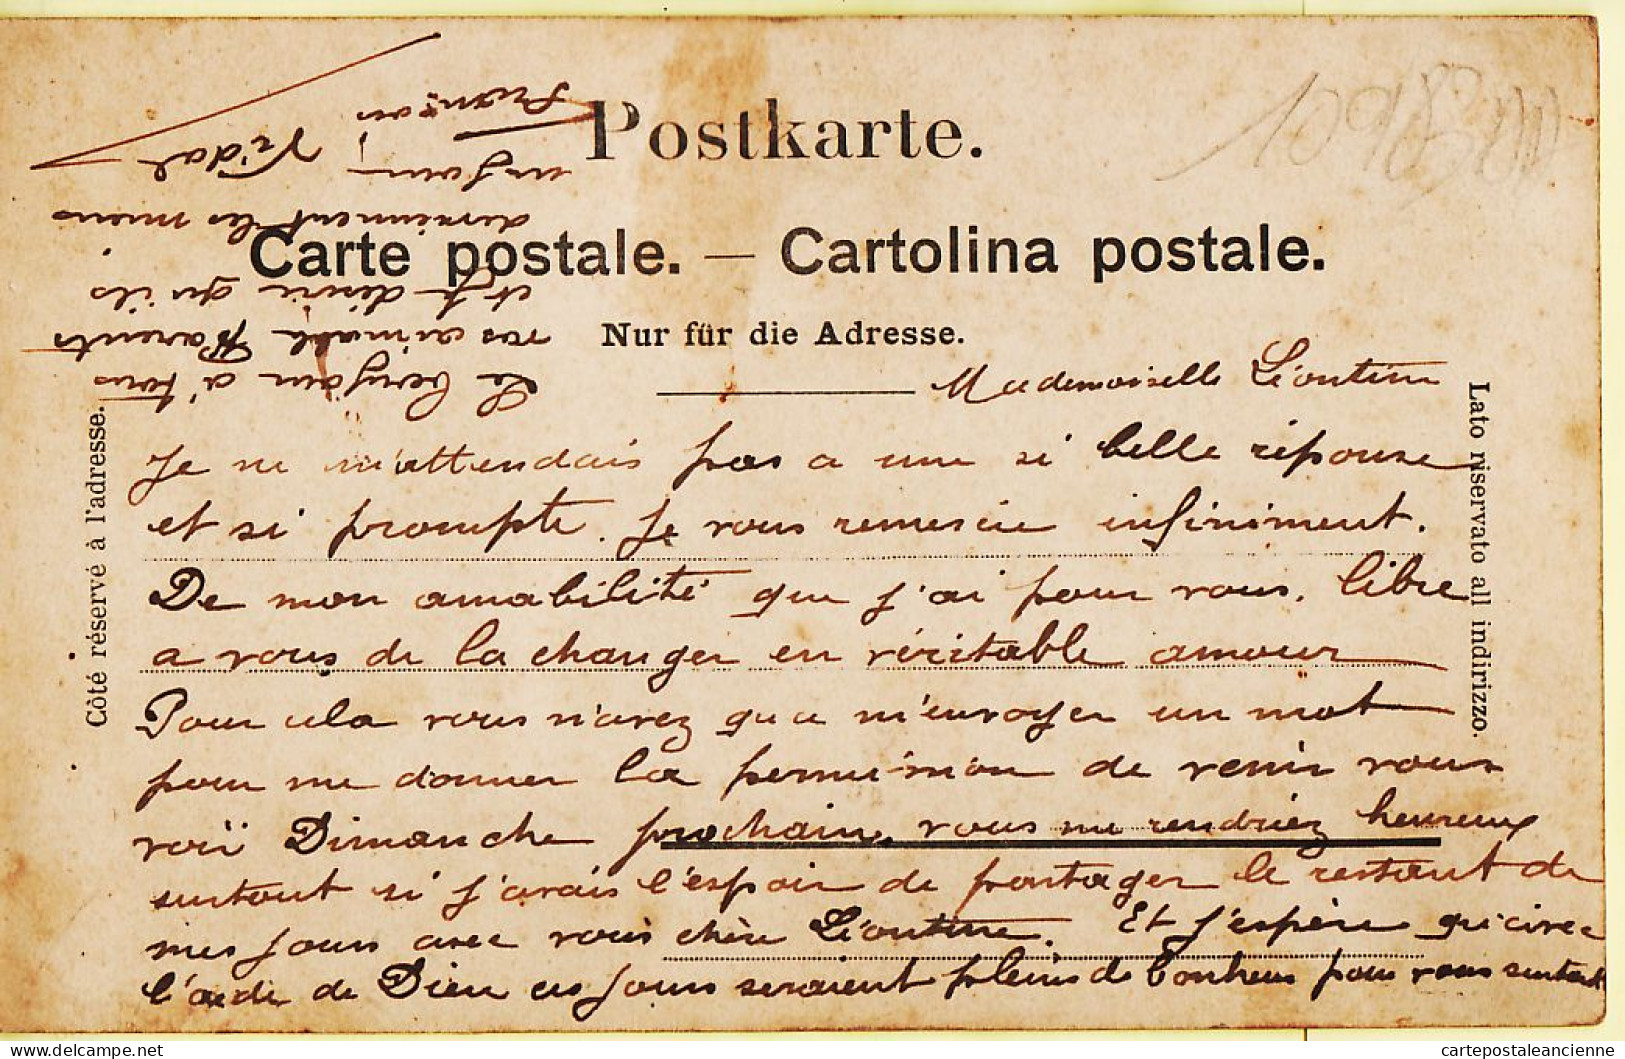 Postkarte.
Carte postale. — Cartolina postale.
Nur für die Adresse.
Côté réservé à l'adresse.
Lato riservato all indirizzo.
Mademoiselle Léontine
Je ne m'attendais pas a une si belle réponse
et si prompte. Je vous remercie infiniment.
De mon amabilité que j'ai pour vous. libre
a vous de la changer en véritable amour
Pour cela vous n'avez qu'a m'envoyer un mot
pour me donner la permission de venir vous
voir Dimanche prochain, vous me rendriez heureux
surtout si j'avais l'espoir de partager le restant de
mes jours avec vous chère Léontine. Et j'espère qu'avec
l'aide de Dieu ces jours seraient pleins de bonheur pour vous surtout
Le bonjour a tous
vos aimable Parents
et je désire qu'ils
deviennent les miens
un jour,
Vidal
François
cartepostaleancienne